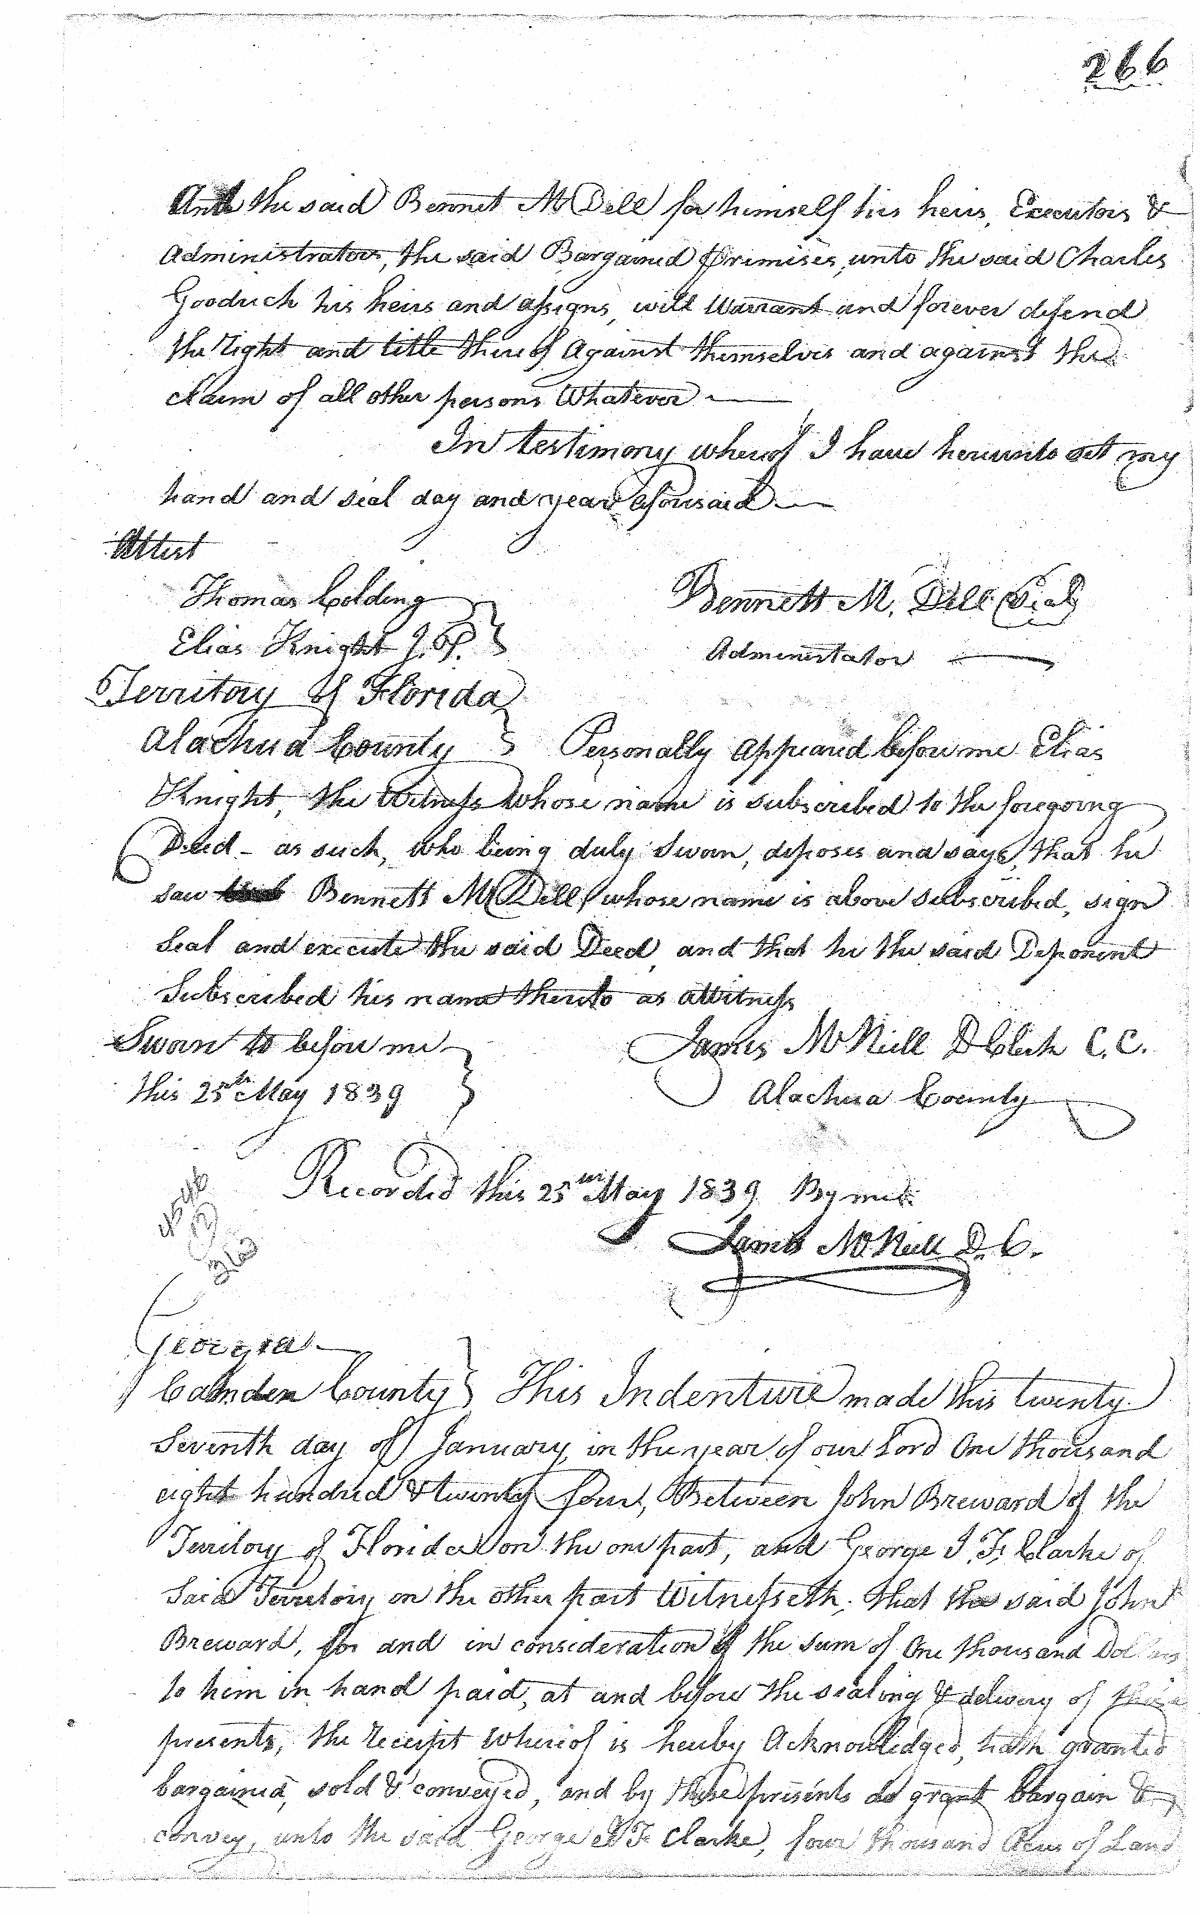 266
And the said Bennet M Dell for himself his heirs, Executors &
Administrators, the said Bargained premises, unto the said Charles
Gooduch his heirs and assigns, will Warrant and forever defend
the right and title thereof Against themselves and against the
claim of all other persons Whatever
In testimony whereof I have hereunto set my
hand and seal day and year aforesaid
Attest
Thomas Colding
Elias Knight J.P.
Bennett M. Dell (Seal)
Administator
Territory of Florida
Alachua County } Personally appeared before me Elias
Knight, the Witness whose name is subscribed to the foregoing
Deed - as such, who being duly Sworn, deposes and says, that he
saw Bennett M Dell whose name is above subscribed, sign
Seal and execute the said Deed, and that he the said Deponent
Subscribed his name thereto as a witness
Sworn to before me
this 25th May 1839
James McNeill D Clerk C.C.
Alachua County
Recorded this 25th May 1839 By me
James McNeill D.C.
Georgia
Camden County } This Indenture made this twenty
Seventh day of January, in the year of our Lord One thousand
eight hundred & twenty four, Between John Breward of the
Territory of Florida on the one part, and George J. F. Clarke of
Said Territory on the other part Witnesseth; that the said John
Breward, for and in consideration of the sum of One thousand Dollars
to him in hand paid, at and before the sealing & delivery of these
presents, the receipt Whereof is hereby Acknowledged, hath granted
bargained, sold & conveyed, and by these presents do grant bargain &
convey, unto the said George J F Clarke, four thousand Acres of Land